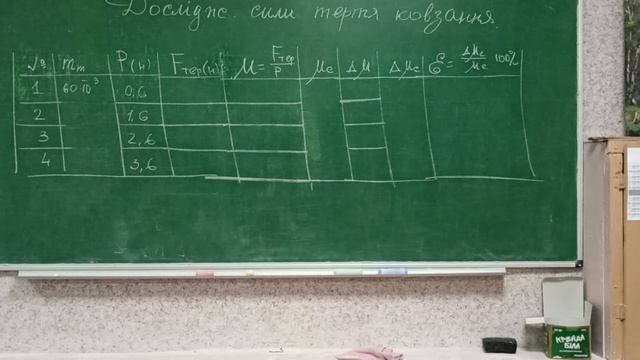 Дослідж. сили тертя ковзання.
№ m_т P(н) F_тер(н) μ = F_тер/P μ_c Δμ Δμ_c ε = Δμ_c/μ_c 100%
1 60·10⁻³ 0,6
2 1,6
3 2,6
4 3,6
КРЕЙДА
БІЛА